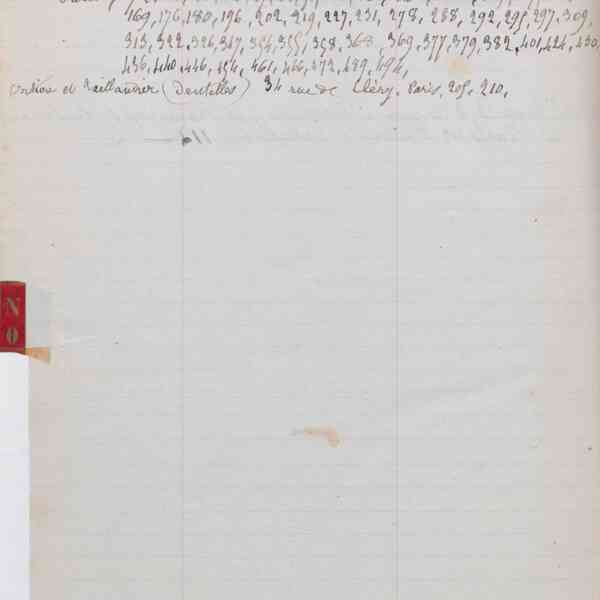 169, 176, 180, 196, 202, 219, 227, 231, 278, 288, 292, 295, 297, 309,
313, 322, 326, 347, 354, 355, 358, 368, 369, 377, 379, 382, 401, 424, 430,
436, 440, 446, 454, 461, 466, 472, 489, 494,
et Taillandier (Dentelles) 34 rue de Cléry. Paris, 205. 210.
N
O